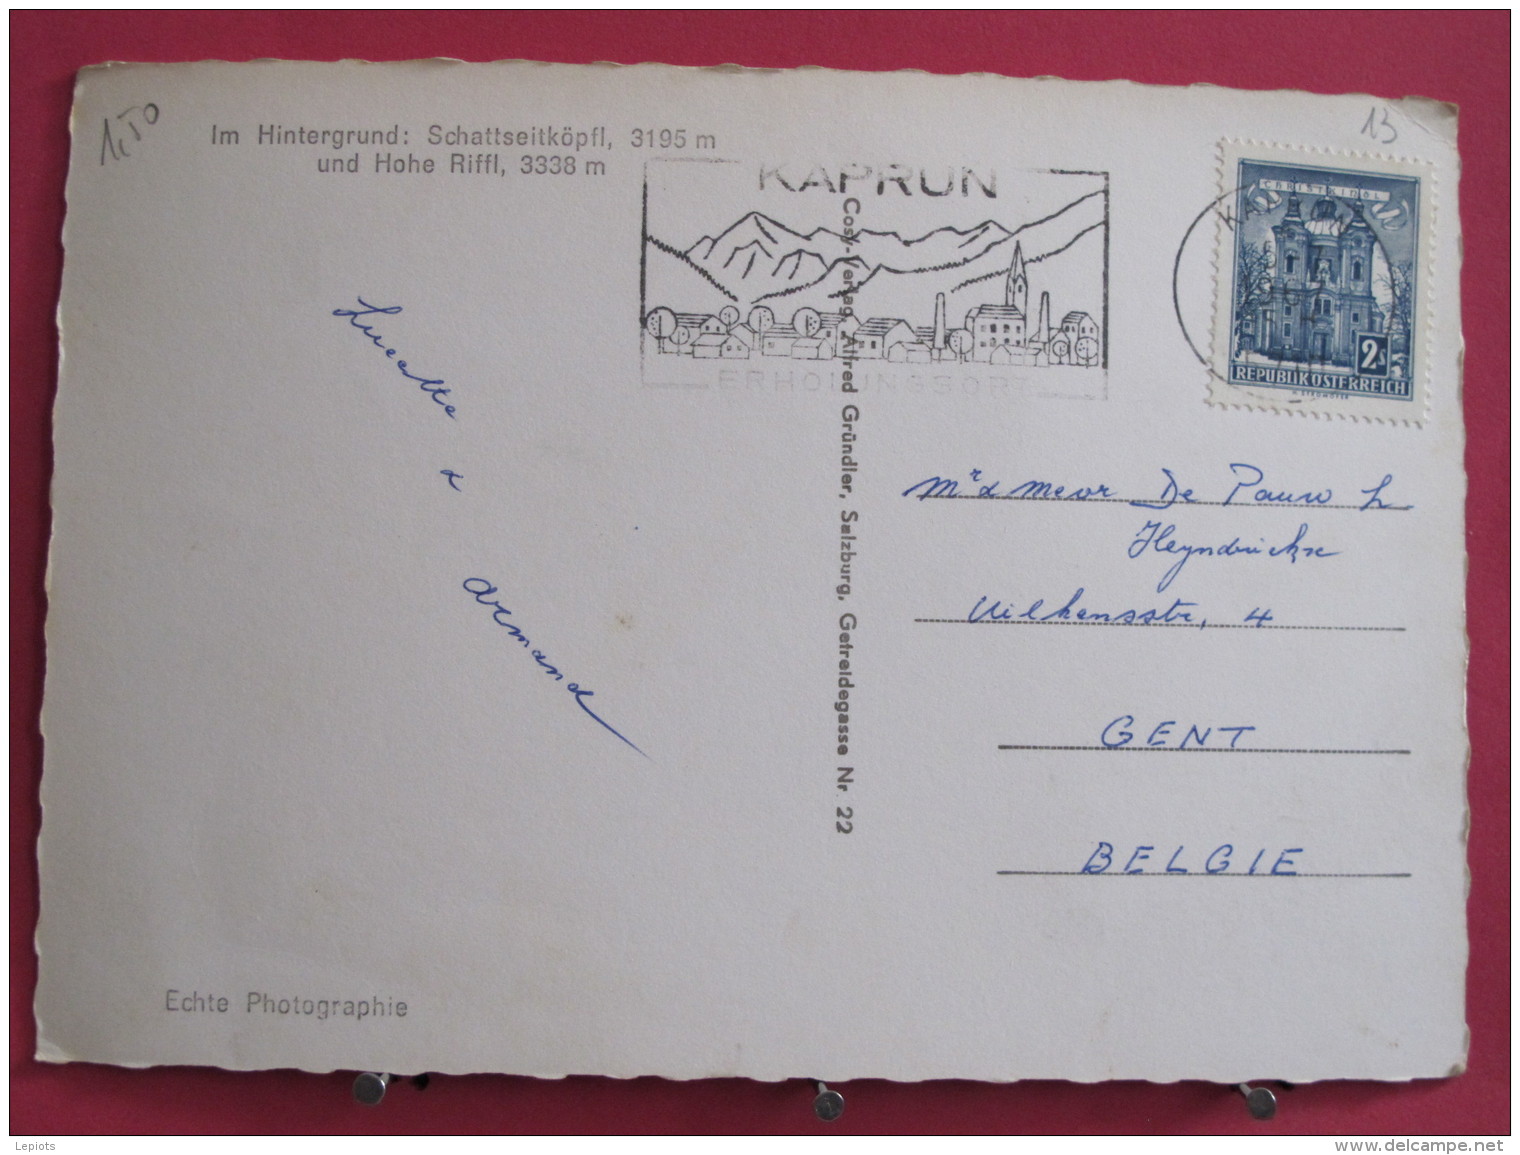 1,50
13
Im Hintergrund: Schattseitköpfl, 3195 m
und Hohe Riffl, 3338 m
KAPRUN
ERHOLUNGSORT
CHRISTKINDL
2s
REPUBLIK ÖSTERREICH
Cosy-Verlag, Alfred Gründler, Salzburg, Getreidegasse Nr. 22
Lucette
&
Armand
Mr & Mevr De Pauw L
Heyndrickx
Uilkensstr, 4
GENT
BELGIE
Echte Photographie
Lepiots
www.delcampe.net